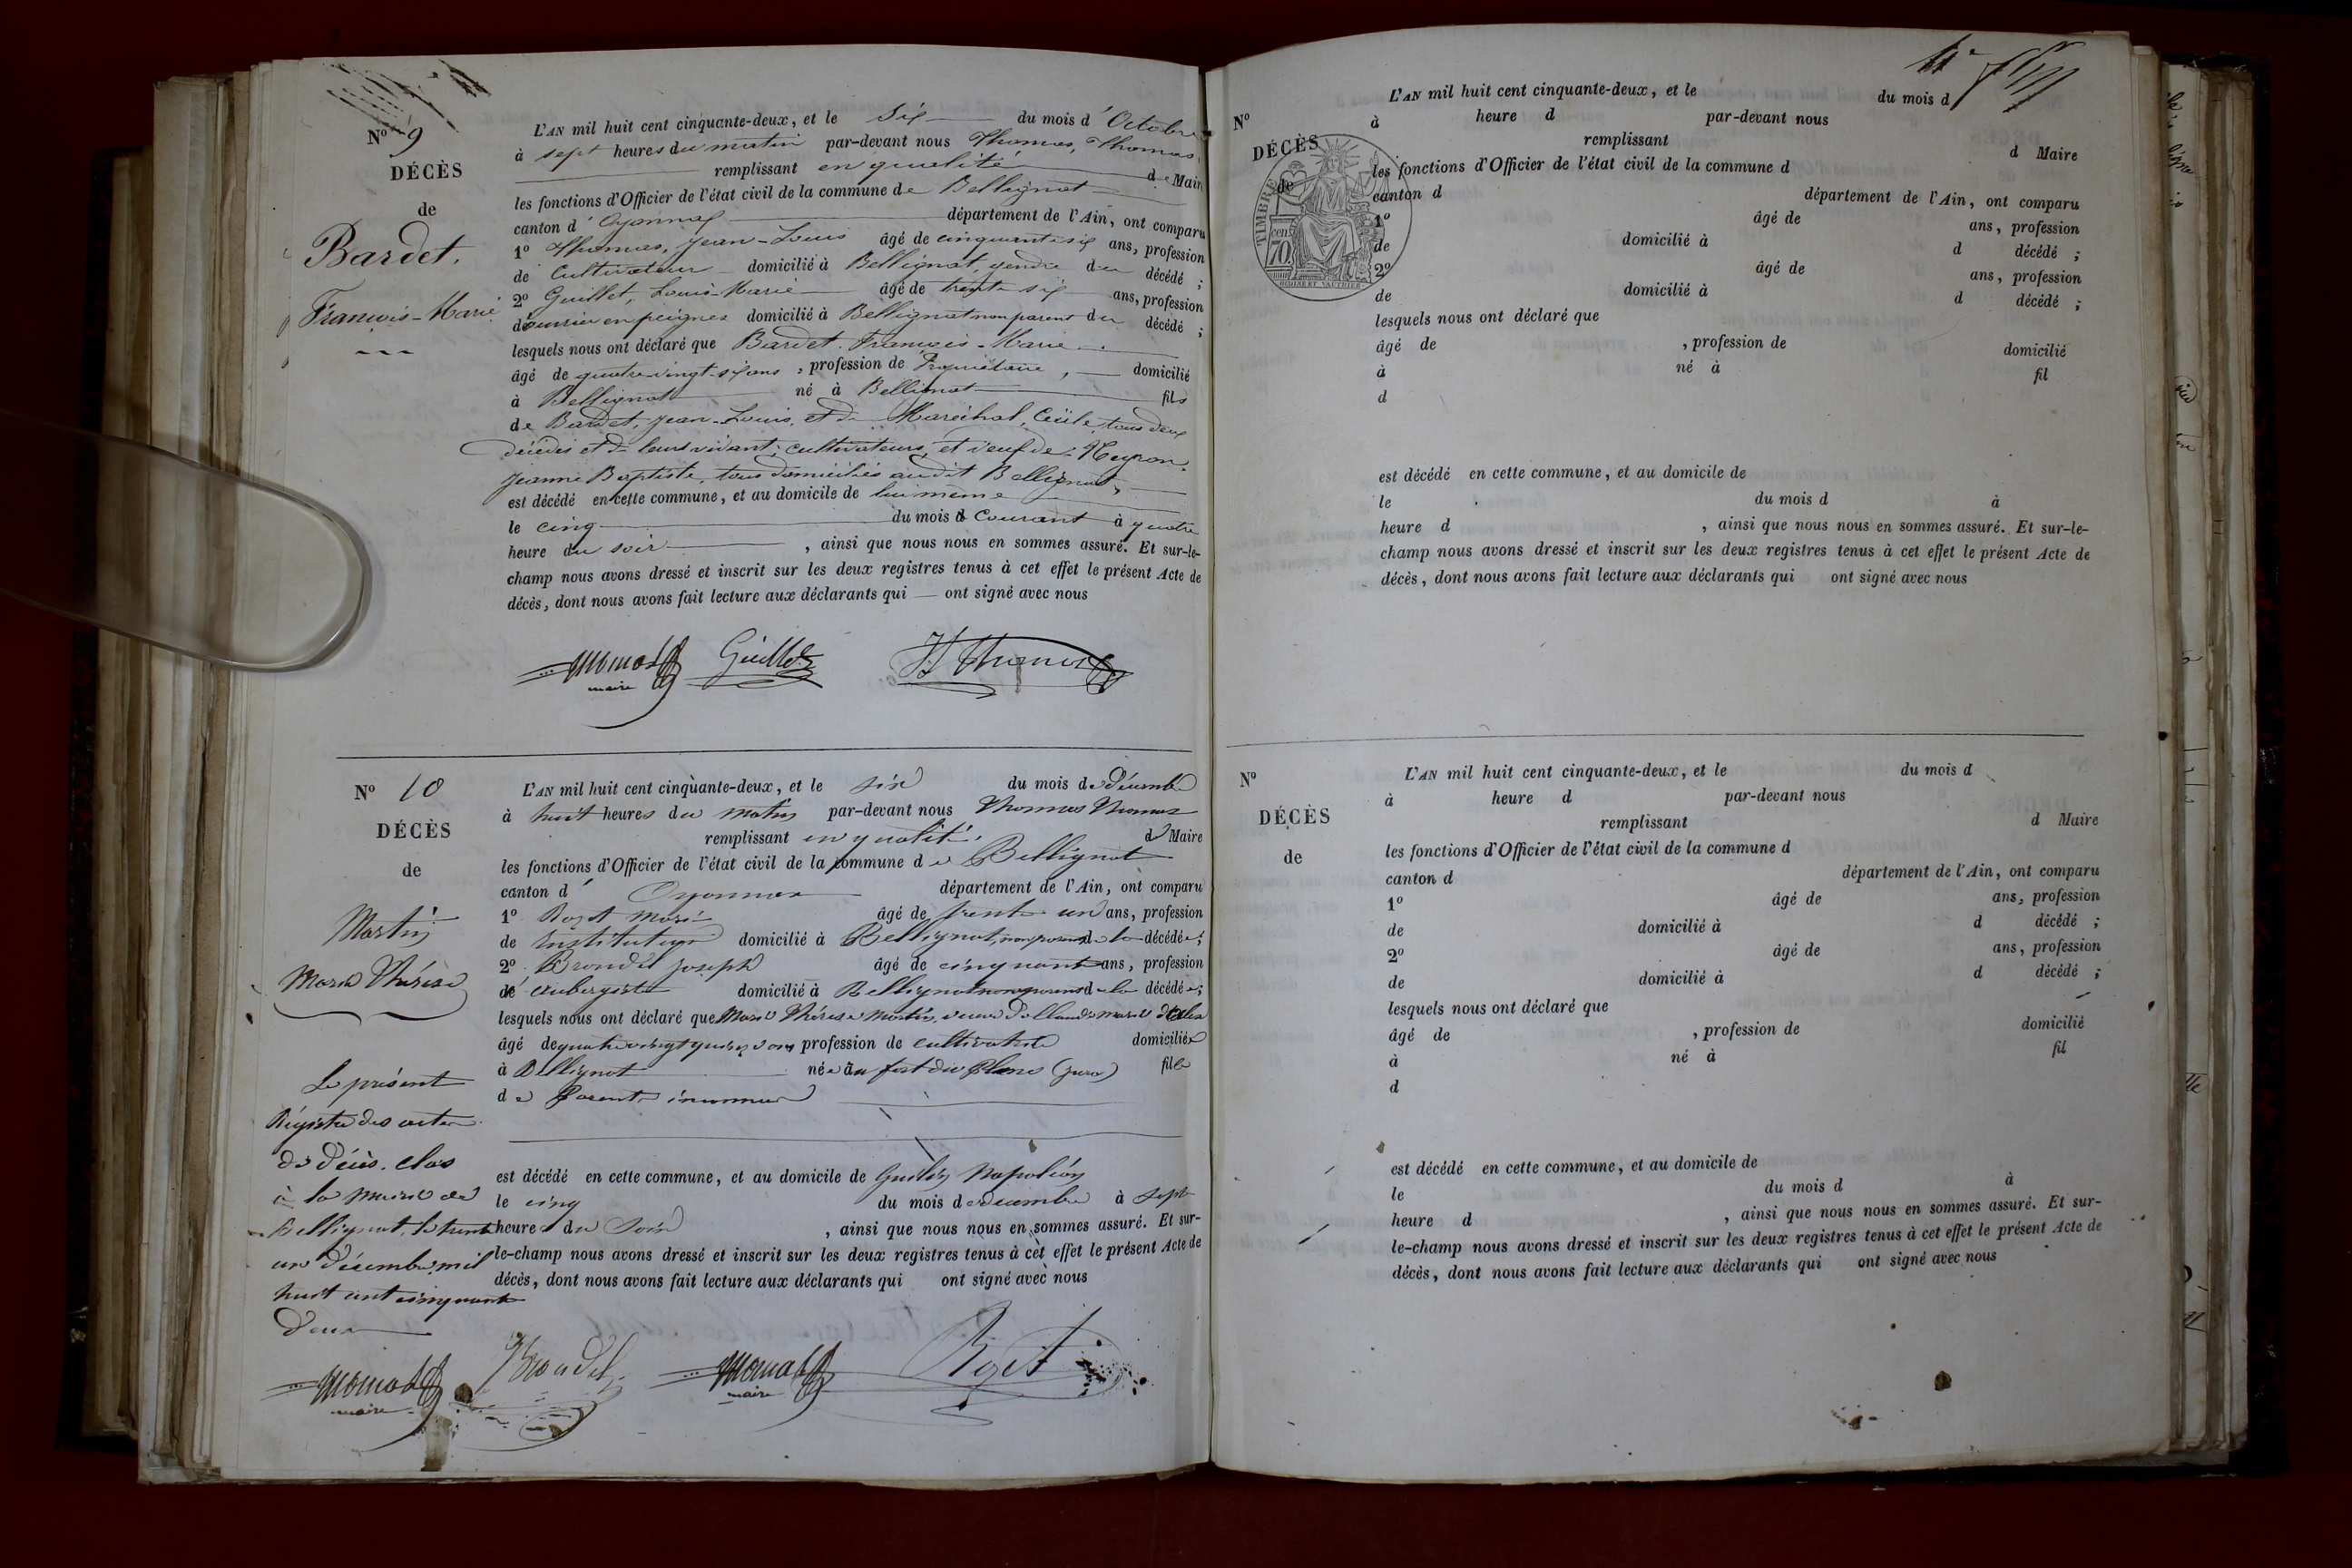 N° 9
DÉCÈS
de
Bardet.
François-Marie
L'AN mil huit cent cinquante-deux, et le Six du mois d'Octobre
à sept heures du matin par-devant nous Thomas, Thomas
remplissant en qualité de Maire
les fonctions d'Officier de l'état civil de la commune de Bellignat
canton d'Oyonnax département de l'Ain, ont comparu
1° Thomas, Jean-Louis âgé de cinquante six ans, profession
de Cultivateur domicilié à Bellignat, gendre du décédé ;
2° Guillet, Louis-Marie âgé de trente six ans, profession
d'ouvrier en peignes domicilié à Bellignat non parent du décédé ;
lesquels nous ont déclaré que Bardet. François-Marie
âgé de quatre-vingt-six ans, profession de Propriétaire, domicilié
à Bellignat né à Bellignat fils
de Bardet, Jean-Louis, et de Maréchal, Cécile, tous deux
décédés et de leurs vivant, cultivateurs, et veuf de
Jeanne Baptiste, tous domiciliés audit Bellignat,
est décédé en cette commune, et au domicile de lui même
le cinq du mois Courant à quatre
heure du soir, ainsi que nous nous en sommes assuré. Et sur-le-
champ nous avons dressé et inscrit sur les deux registres tenus à cet effet le présent Acte de
décès, dont nous avons fait lecture aux déclarants qui — ont signé avec nous
Thomas Guillet Thomas
maire
N° 10
DÉCÈS
de
Martin
Marie Thérèse
L'AN mil huit cent cinquante-deux, et le six du mois de Décembre
à huit heures du matin par-devant nous Thomas Thomas
remplissant en qualité de Maire
les fonctions d'Officier de l'état civil de la commune de Bellignat
canton d'Oyonnax département de l'Ain, ont comparu
1° Rozet Marie âgé de trente un ans, profession
de instituteur domicilié à Bellignat, non parent de la décédée ;
2° Brondel Joseph âgé de cinquante ans, profession
de aubergiste domicilié à Bellignat non parent de la décédée ;
lesquels nous ont déclaré que Marie Thérèse Martin, veuve
âgé de quatre vingt quinze ans profession de cultivatrice domiciliée
à Bellignat née au fort du Plane (Jura) fille
de Parents inconnus
est décédé en cette commune, et au domicile de Napoléon
le cinq du mois de décembre à sept
heure du Soir, ainsi que nous nous en sommes assuré. Et sur-
le-champ nous avons dressé et inscrit sur les deux registres tenus à cet effet le présent Acte de
décès, dont nous avons fait lecture aux déclarants qui ont signé avec nous
Le présent
Régistre des actes
de Décès. clos
à la Mairie de
Bellignat, le trente
un décembre, mil
huit cent cinquante
Deux
Thomas Brondel Thomas Rozet
maire maire
N°
DÉCÈS
de
TIMBRE
cen.
70.
L'AN mil huit cent cinquante-deux, et le du mois d
à heure d par-devant nous
remplissant d Maire
les fonctions d'Officier de l'état civil de la commune d
canton d département de l'Ain, ont comparu
1° âgé de ans, profession
de domicilié à d décédé ;
2° âgé de ans, profession
de domicilié à d décédé ;
lesquels nous ont déclaré que
âgé de , profession de domicilié
à né à fil
d
est décédé en cette commune, et au domicile de
le du mois d à
heure d , ainsi que nous nous en sommes assuré. Et sur-le-
champ nous avons dressé et inscrit sur les deux registres tenus à cet effet le présent Acte de
décès, dont nous avons fait lecture aux déclarants qui ont signé avec nous
N°
DÉCÈS
de
L'AN mil huit cent cinquante-deux, et le du mois d
à heure d par-devant nous
remplissant d Maire
les fonctions d'Officier de l'état civil de la commune d
canton d département de l'Ain, ont comparu
1° âgé de ans, profession
de domicilié à d décédé ;
2° âgé de ans, profession
de domicilié à d décédé ;
lesquels nous ont déclaré que
âgé de , profession de domicilié
à né à fil
d
est décédé en cette commune, et au domicile de
le du mois d à
heure d , ainsi que nous nous en sommes assuré. Et sur-
le-champ nous avons dressé et inscrit sur les deux registres tenus à cet effet le présent Acte de
décès, dont nous avons fait lecture aux déclarants qui ont signé avec nous